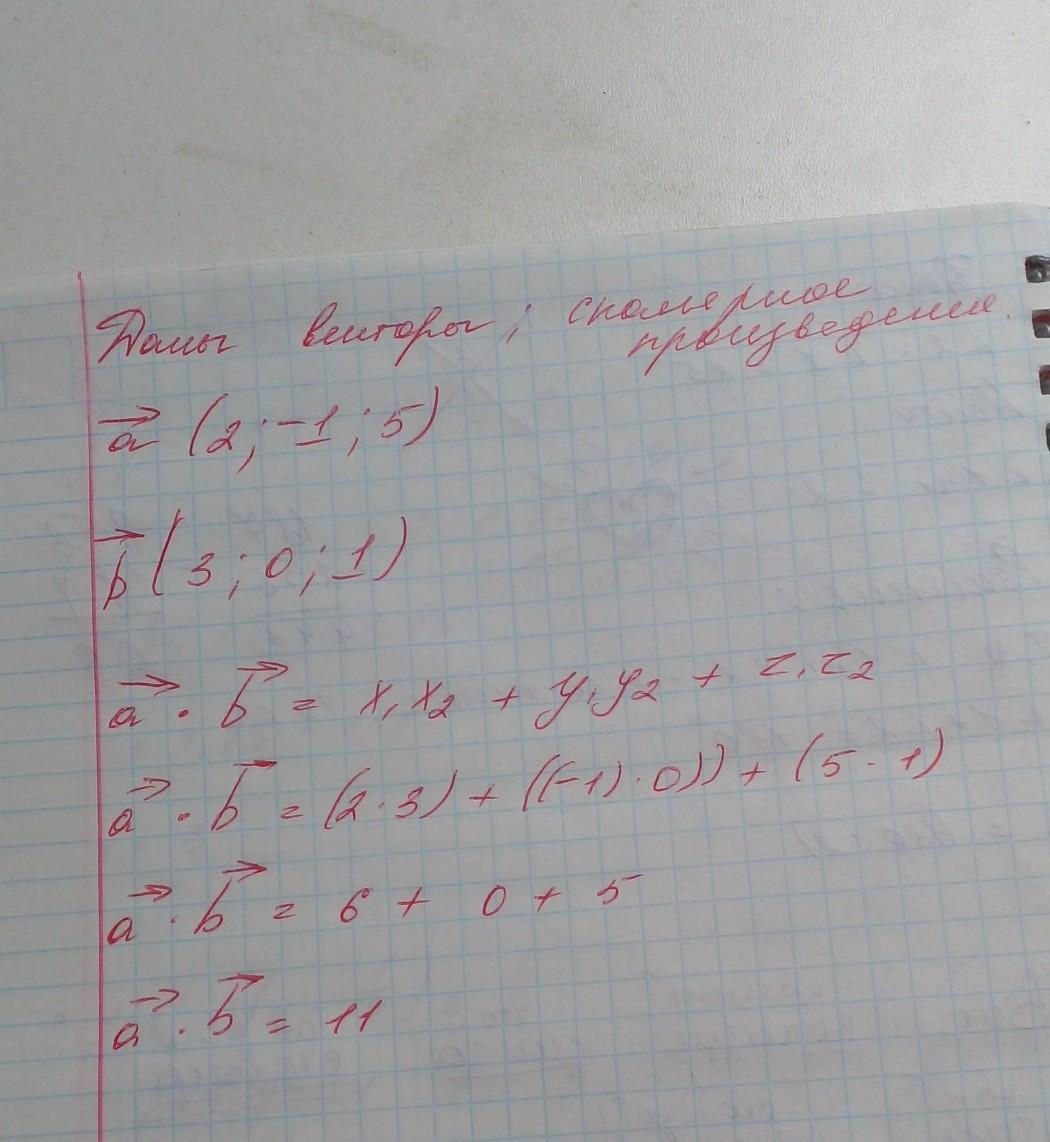 Даны векторы; скалярное
произведение.
a⃗ (2; -1; 5)
b⃗ (3; 0; 1)
a⃗ · b⃗ = x₁x₂ + y₁y₂ + z₁z₂
a⃗ · b⃗ = (2·3) + ((-1)·0)) + (5·1)
a⃗ · b⃗ = 6 + 0 + 5
a⃗ · b⃗ = 11